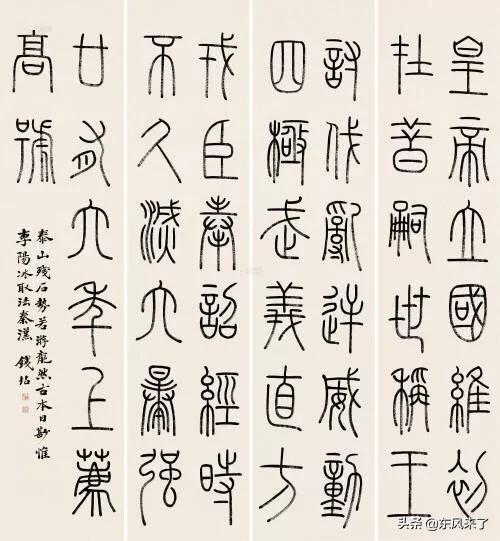 皇帝立國維初
在昔嗣世稱王
討伐亂逆威動
四極武義直方
戎臣奉詔經時
不久滅六暴强
廿有六年上薦
高號
泰山殘石勢若游龍然古本日尠惟
李陽冰取法秦漢 錢坫
头条 @东风来了